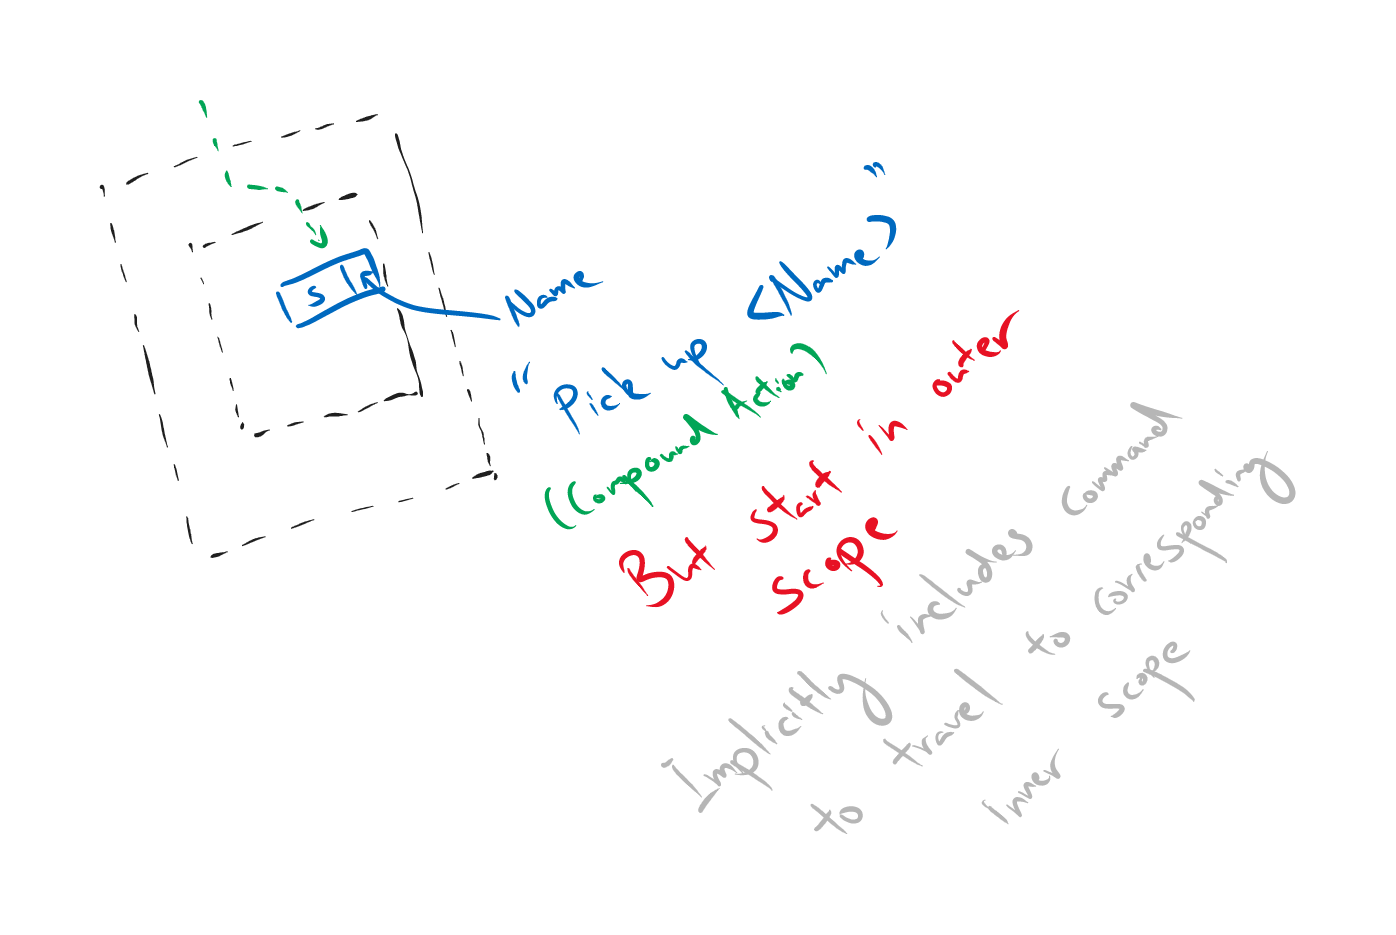 S
Name
"Pick up <Name>"
(Compound Action)
But start in outer
scope
Implicitly includes Command
to travel to corresponding
inner scope